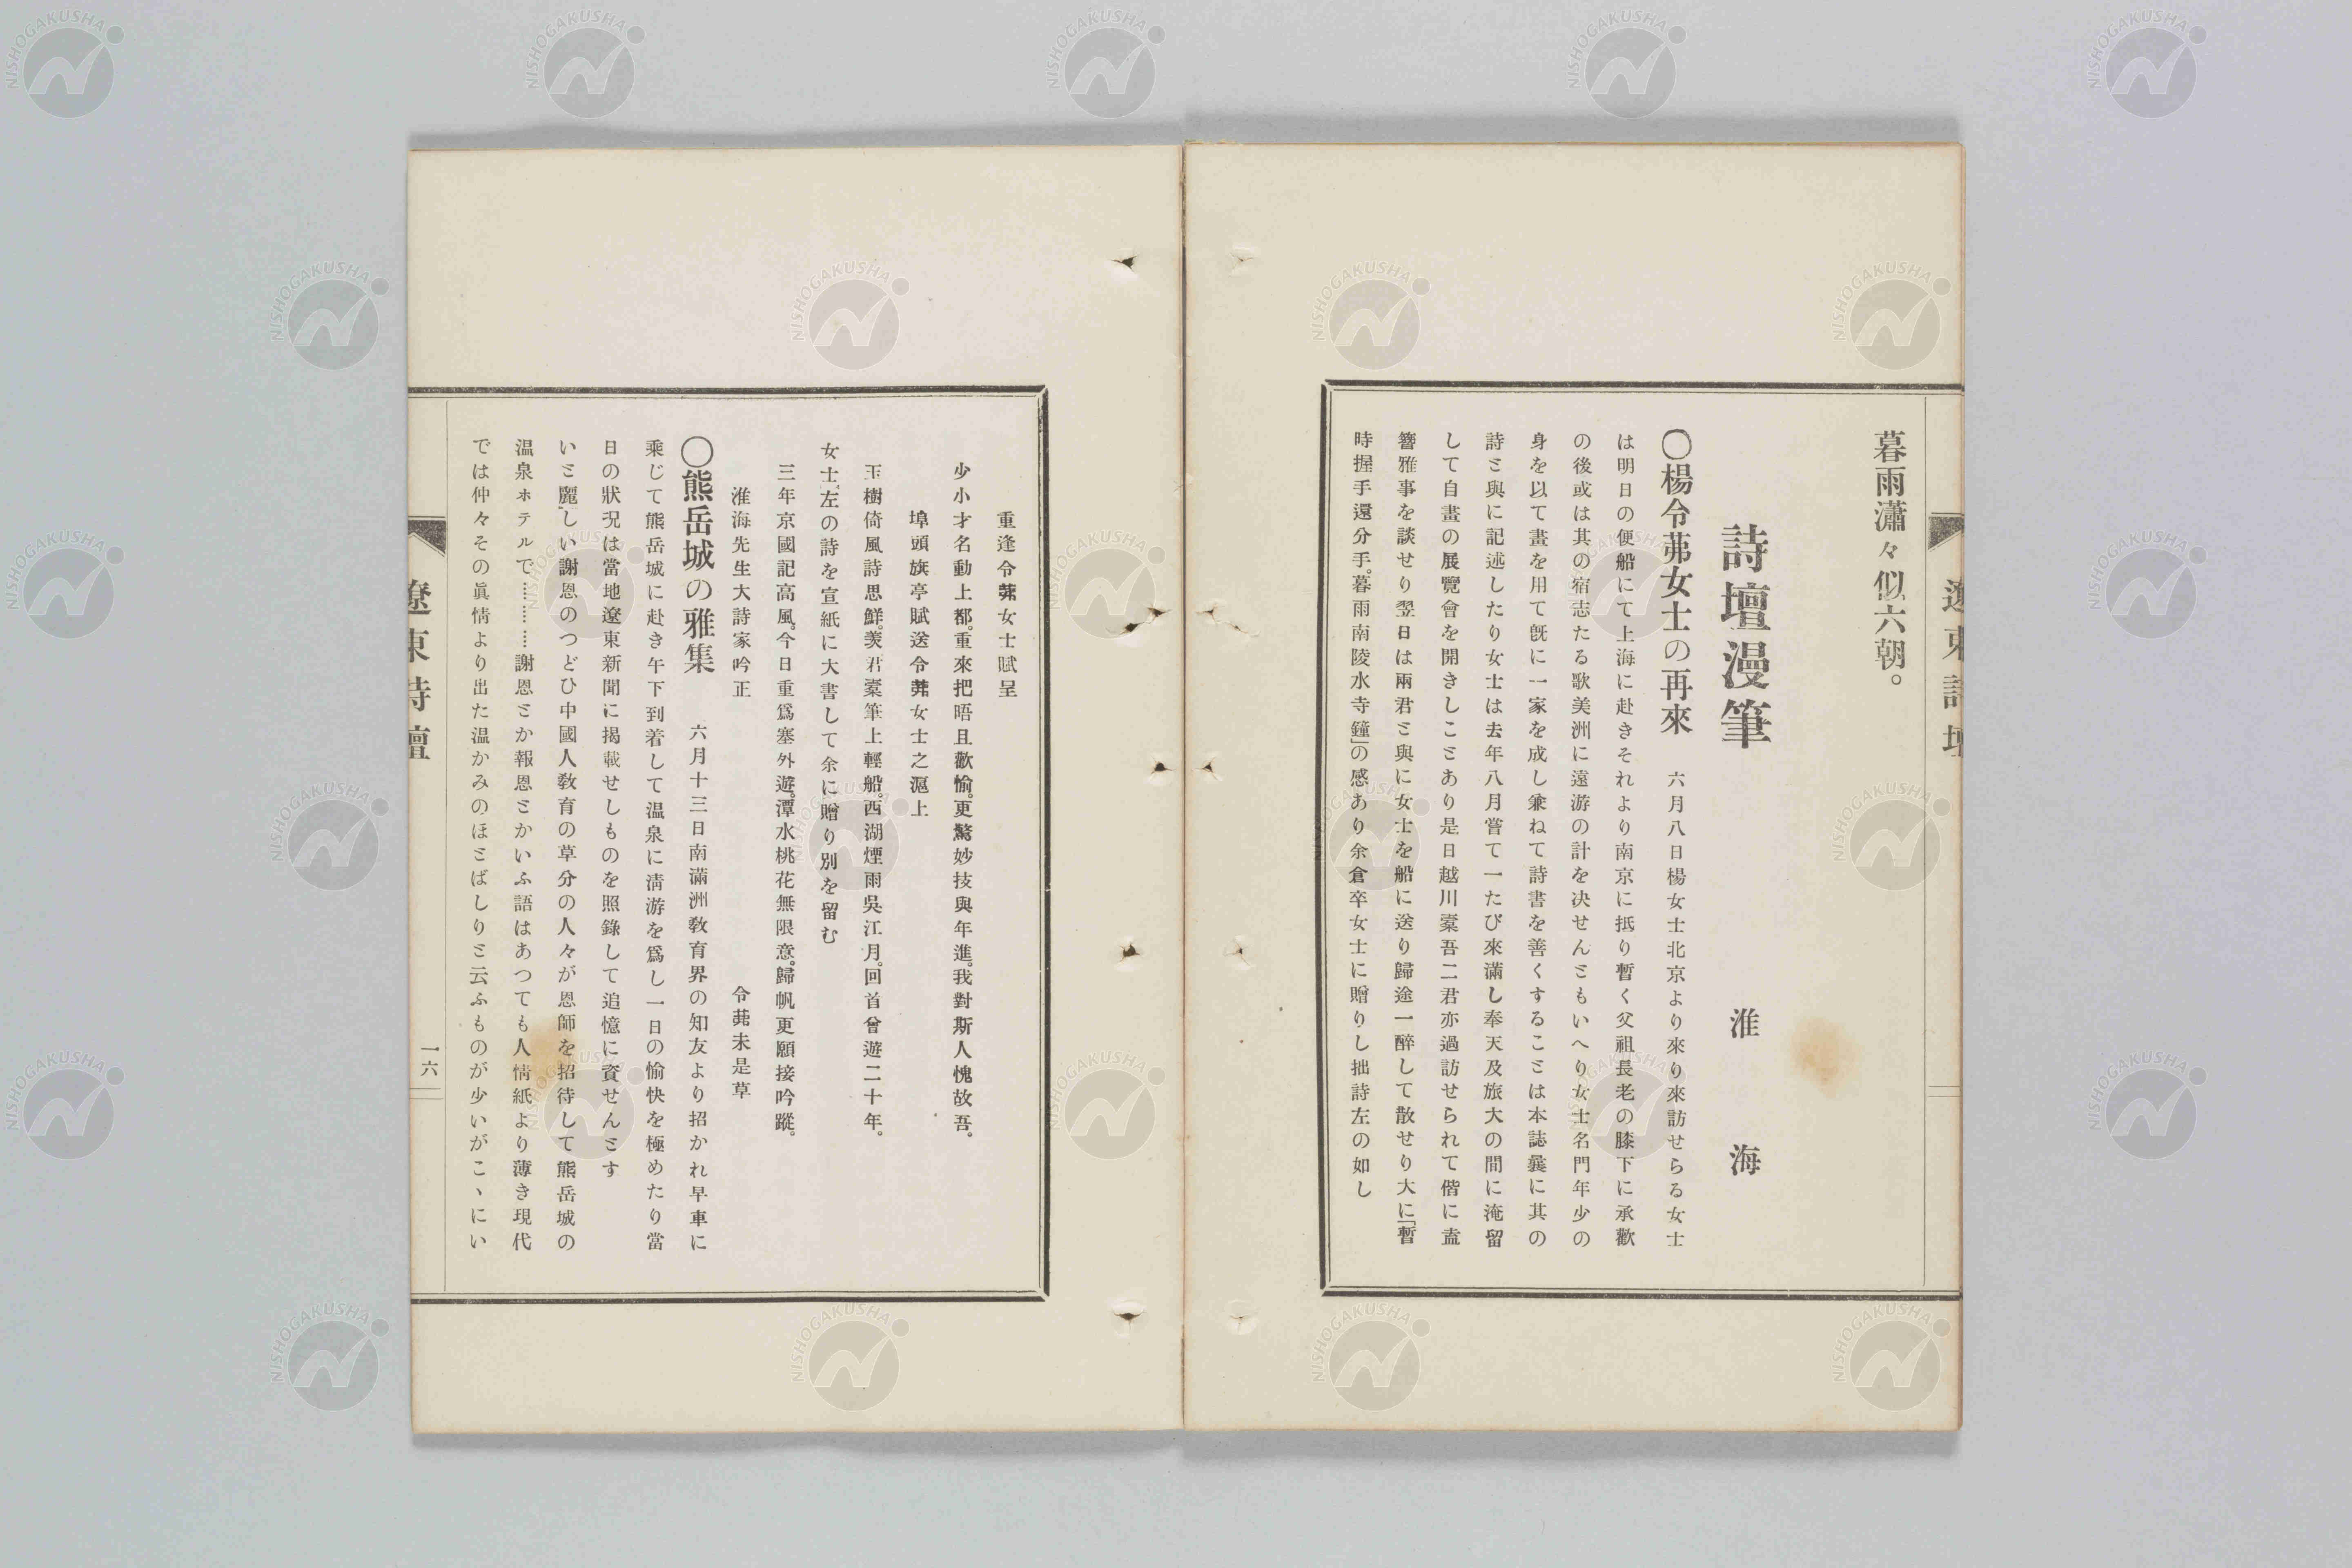 遼東詩壇
暮雨瀟々似六朝。
詩壇漫筆
淮海
〇楊令茀女士の再來 六月八日楊女士北京より來り來訪せらる女士
は明日の便船にて上海に赴きそれより南京に抵り暫く父祖長老の膝下に承歡
の後或は其の宿志たる歌美洲に遠游の計を决せんともいへり女士名門年少の
身を以て畫を用て旣に一家を成し兼ねて詩書を善くすることは本誌曩に其の
詩と與に記述したり女士は去年八月嘗て一たび來滿し奉天及旅大の間に淹留
して自畫の展覽會を開きしことあり是日越川槖吾二君亦過訪せられて偕に盍
簪雅事を談せり翌日は兩君と與に女士を船に送り歸途一醉して散せり大に「暫
時握手還分手。暮雨南陵水寺鐘」の感あり余倉卒女士に贈りし拙詩左の如し
重逢令茀女士賦呈
少小才名動上都。重來把晤且歡愉。更驚妙技與年進。我對斯人愧故吾。
埠頭旗亭賦送令茀女士之滬上
玉樹倚風詩思鮮。羨君槖筆上輕船。西湖煙雨吳江月。回首曾遊二十年。
女士左の詩を宣紙に大書して余に贈り別を留む
三年京國記高風。今日重爲塞外遊。潭水桃花無限意。歸帆更願接吟蹤。
淮海先生大詩家吟正 令茀未是草
〇熊岳城の雅集 六月十三日南滿洲敎育界の知友より招かれ早車に
乘じて熊岳城に赴き午下到着して温泉に淸游を爲し一日の愉快を極めたり當
日の狀況は當地遼東新聞に揭載せしものを照錄して追憶に資せんとす
いと麗しい謝恩のつどひ中國人敎育の草分の人々が恩師を招待して熊岳城の
温泉ホテルで…………謝恩とか報恩とかいふ語はあつても人情紙より薄き現代
では仲々その眞情より出た温かみのほとばしりと云ふものが少いがこゝにい
遼東詩壇
一六